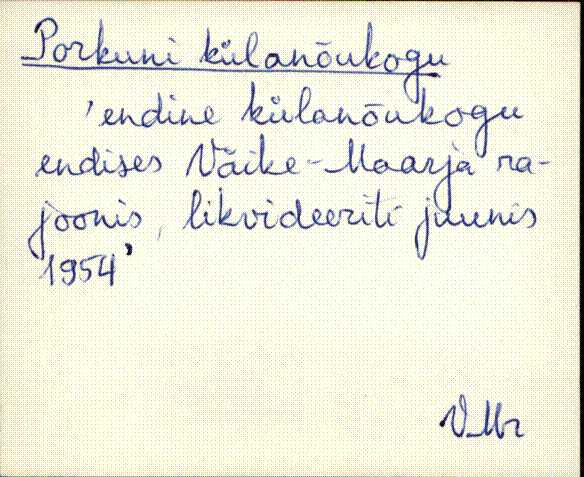 Porkuni külanõukogu
'endine külanõukogu
endises Väike-Maarja ra-
joonis, likvideeriti juunis
1954'
VMr